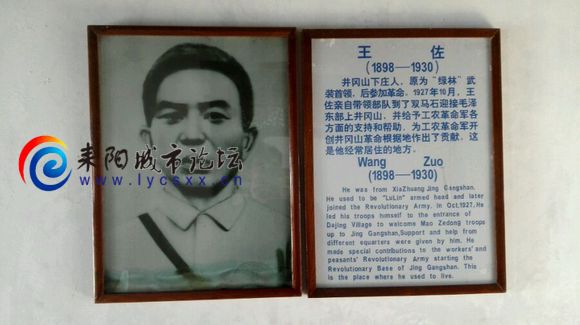 耒阳城市论坛
www.lycsxx.cn
王 佐
(1898—1930)
井冈山下庄人，原为“绿林”武
装首领，后参加革命，1927年10月，王
佐亲自带领部队到了双马石迎接毛泽
东部上井冈山，并给予工农革命军各
方面的支持和帮助，为工农革命军开
创井冈山革命根据地作出了贡献，这
是他经常居住的地方。
Wang Zuo
(1898—1930)
He was from XiaZhuang Jing Gangshan.
He used to be "LuLin" armed head and later
joined the Revolutionary Army. In Oct,1927,He
led his troops himself to the entrance of
Dajing Village to welcome Mao Zedong troops
up to Jing Gangshan,Support and help from
different equarters were given by him. He
made special contributions to the workers' and
peasants' Revolutionary Army starting the
Revolutionary Base of Jing Gangshan. This
is the place where he used to live.